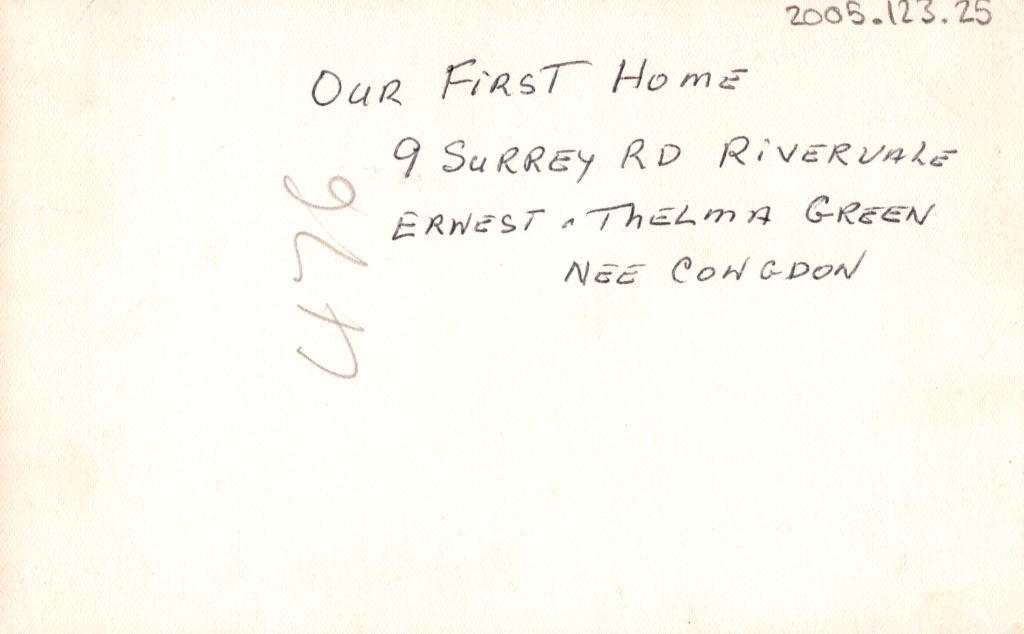 2005.123.25
OUR FIRST HOME
9 SURREY RD RIVERVALE
ERNEST & THELMA GREEN
NEE CONGDON
476